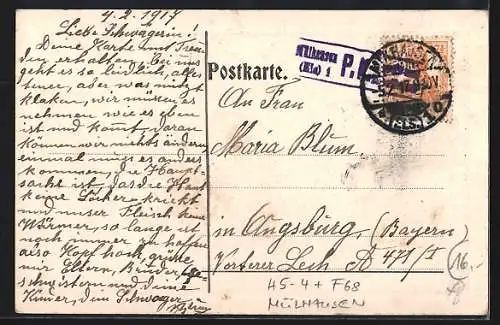 4.2.1917
Liebe Schwägerin!
Deine Karte mit Freu-
den erhalten. Bei uns
geht es so leidlich, alles
teuer, aber was nützt
klaken, wir müssen es
nehmen wie es eben
ist und kommt, daran
können wir nichts ändern
einmal muß es anders
kommen, die Haupt-
sache ist, das die Haut
keine Löcher kriekt
und unser Fleisch keine
Würmer, so lange ist
noch immer zu hoffen
also Kopf hoch, grüße
mir Eltern, Brüder, Ge-
schwistern und deine
Kinder, dein Schwager
Postkarte.
Mülhausen
(Els) 1
P.K.
An Frau
Maria Blum
in Augsburg, (Bayern)
Vorderer Lech A 471/I
16.-
45-4+F68
MÜLHAUSEN